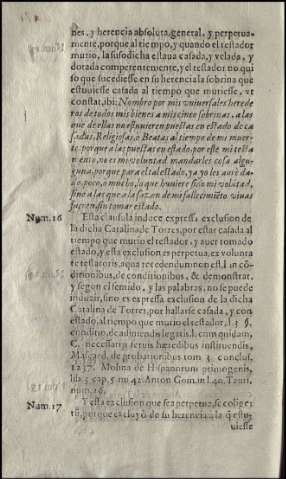 nes, y herencia absoluta, general, y perpetua-
mente, porque al tiempo, y quando el testador
murio, la susodicha estaua casada, y velada, y
dotada comperentemente, y el testador no qui
so que sucediesse en su herencia la sobrina que
estuuiesse casada al tiempo que muriesse, vt
constat, ibi: Nombro por mis vniuersales herede
ros de todos mis bienes a mis cinco sobrinas, a las
que de ellas no estuuieren puestas en estado de ca
sadas, Religiosas, o Beatas al tiempo de mi muer
te, porque a las puestas en estado, por este mi testa
mento, no es mi voluntad mandarles cosa algu-
na, porque para el tal estado, ya yo les auré da-
do poco, o mucho, lo que huuiere sido mi volūtad,
sino a las que a la sazon de mi fallecimiēto viuas
para tomar estado.
Num. 16 Esta clausula induce expressa exclusion de
la dicha Catalina de Torres, por estar casada al
tiempo que murio el testador, y auer tomado
estado, y esta exclusion es perpetua, ex volunta
te testatoris, a qua recedendum non est, l. in cō
ditionibus, de conditionibus, & demonstrat,
y segun el sentido, y las palabras, no se puede
induzir, sino es expressa exclusion de la dicha
Catalina de Torres, por hallarse casada, y con
estado, al tiempo que murio el testador, l. 3. §.
conditio, de adimendis legatis, l. cum quidam,
C. necessarijs seruis hæredibus instituendis,
Mascard. de probationibus tom. 3. conclus.
1237. Molina de Hispanorum primogenijs,
lib. 3. cap. 5. nu. 42. Anton. Gom. in l. 40. Tauri,
num. 18.
Num. 17 Y esta exclusion que sea perpetua, se colige
viesse